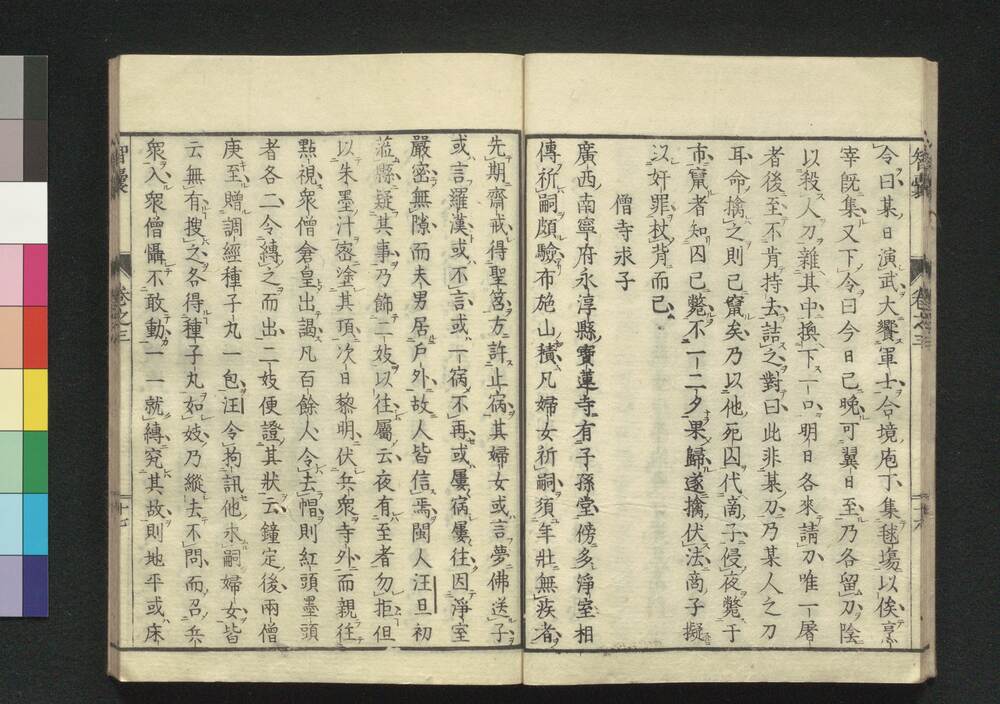 令曰某日演武大饗軍士合境庖丁集毬塲以俟烹
宰既集又下令曰今日已晚可翼日至乃各留刀陰
以殺人刀雜其中換下一口明日各來請刀唯一屠
者後至不肯持去詰之對曰此非某刀乃某人之刀
耳命擒之則已竄矣乃以他死囚代商子侵夜斃于
市竄者知囚已斃不一二夕果歸遂擒伏法商子擬
以奸罪杖背而已
僧寺求子
廣西南寧府永淳縣寶蓮寺有子孫堂傍多淨室相
傳祈嗣頗驗布施山積凡婦女祈嗣須年壯無疾者
先期齋戒得聖筶方許止宿其婦女或言夢佛送子
或言羅漢或不言或一宿不再或屢宿屢往因淨室
嚴密無隙而夫男居戶外故人皆信焉閩人汪旦初
蒞縣疑其事乃飾二妓以往屬云夜有至者勿拒但
以朱墨汁密塗其頂次日黎明伏兵衆寺外而親往
點視衆僧倉皇出謁凡百餘人令去帽則紅頭墨頭
者各二令縛之而出二妓便證其狀云鐘定後兩僧
庚至贈調經種子丸一包汪令拘訊他求嗣婦女皆
云無有搜之各得種子丸如妓乃縱去不問而召兵
衆入衆僧懾不敢動一一就縛究其故則地平或床
智囊
卷之三
十七
智囊
卷之三